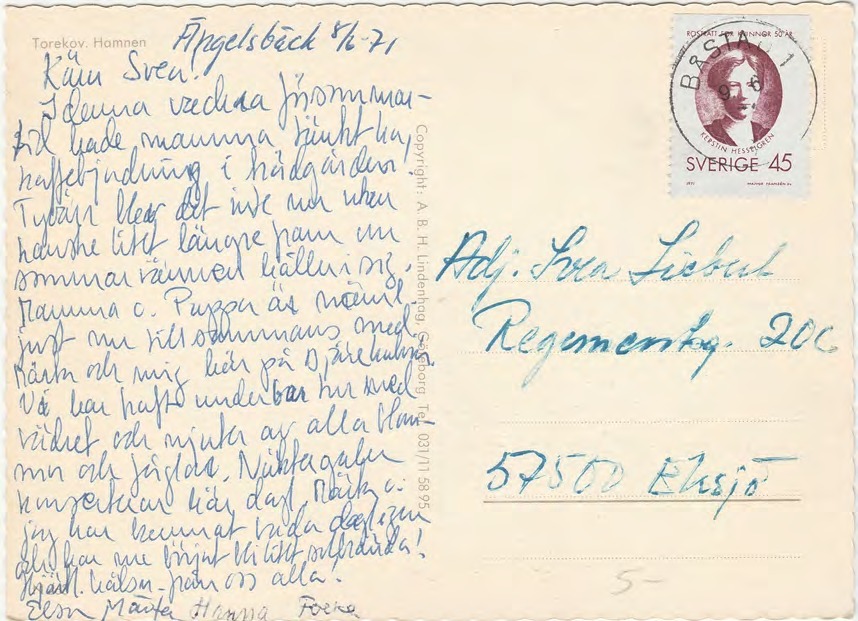 Torekov. Hamnen
Ängelsbäck 8/6-71
Kära Svea!
I denna vackra försommar-
tid hade mamma tänkt ha
kaffebjudning i trädgården.
Tyvärr blev det inte nu utan
kanske litet längre fram om
sommarvärmen håller i sig.
Mamma o. Pappa är nämL.
just nu tillsammans med
Märta och mig här på Bjärehalvön.
Vi har haft underbar tur med
vädret och njuter av alla blom-
mor och fåglar. Näktergalen
konserterar här dagl. Märta o.
jag har kunnat bada dagligen
och har nu börjat bli litet solbrända!
Hjärtl. hälsn. från oss alla!
Elsa Märta Hanna
Copyright: A. B. H. Lindenhag, Göteborg Tel. 031/11 58 95
RÖSTRÄTT FÖR KVINNOR 50 ÅR
BÅSTAD 1
9. 6
KERSTIN HESSELGREN
SVERIGE 45
1971
Adj. Svea Siebert
Regementsg. 20C
57500 Eksjö
5-